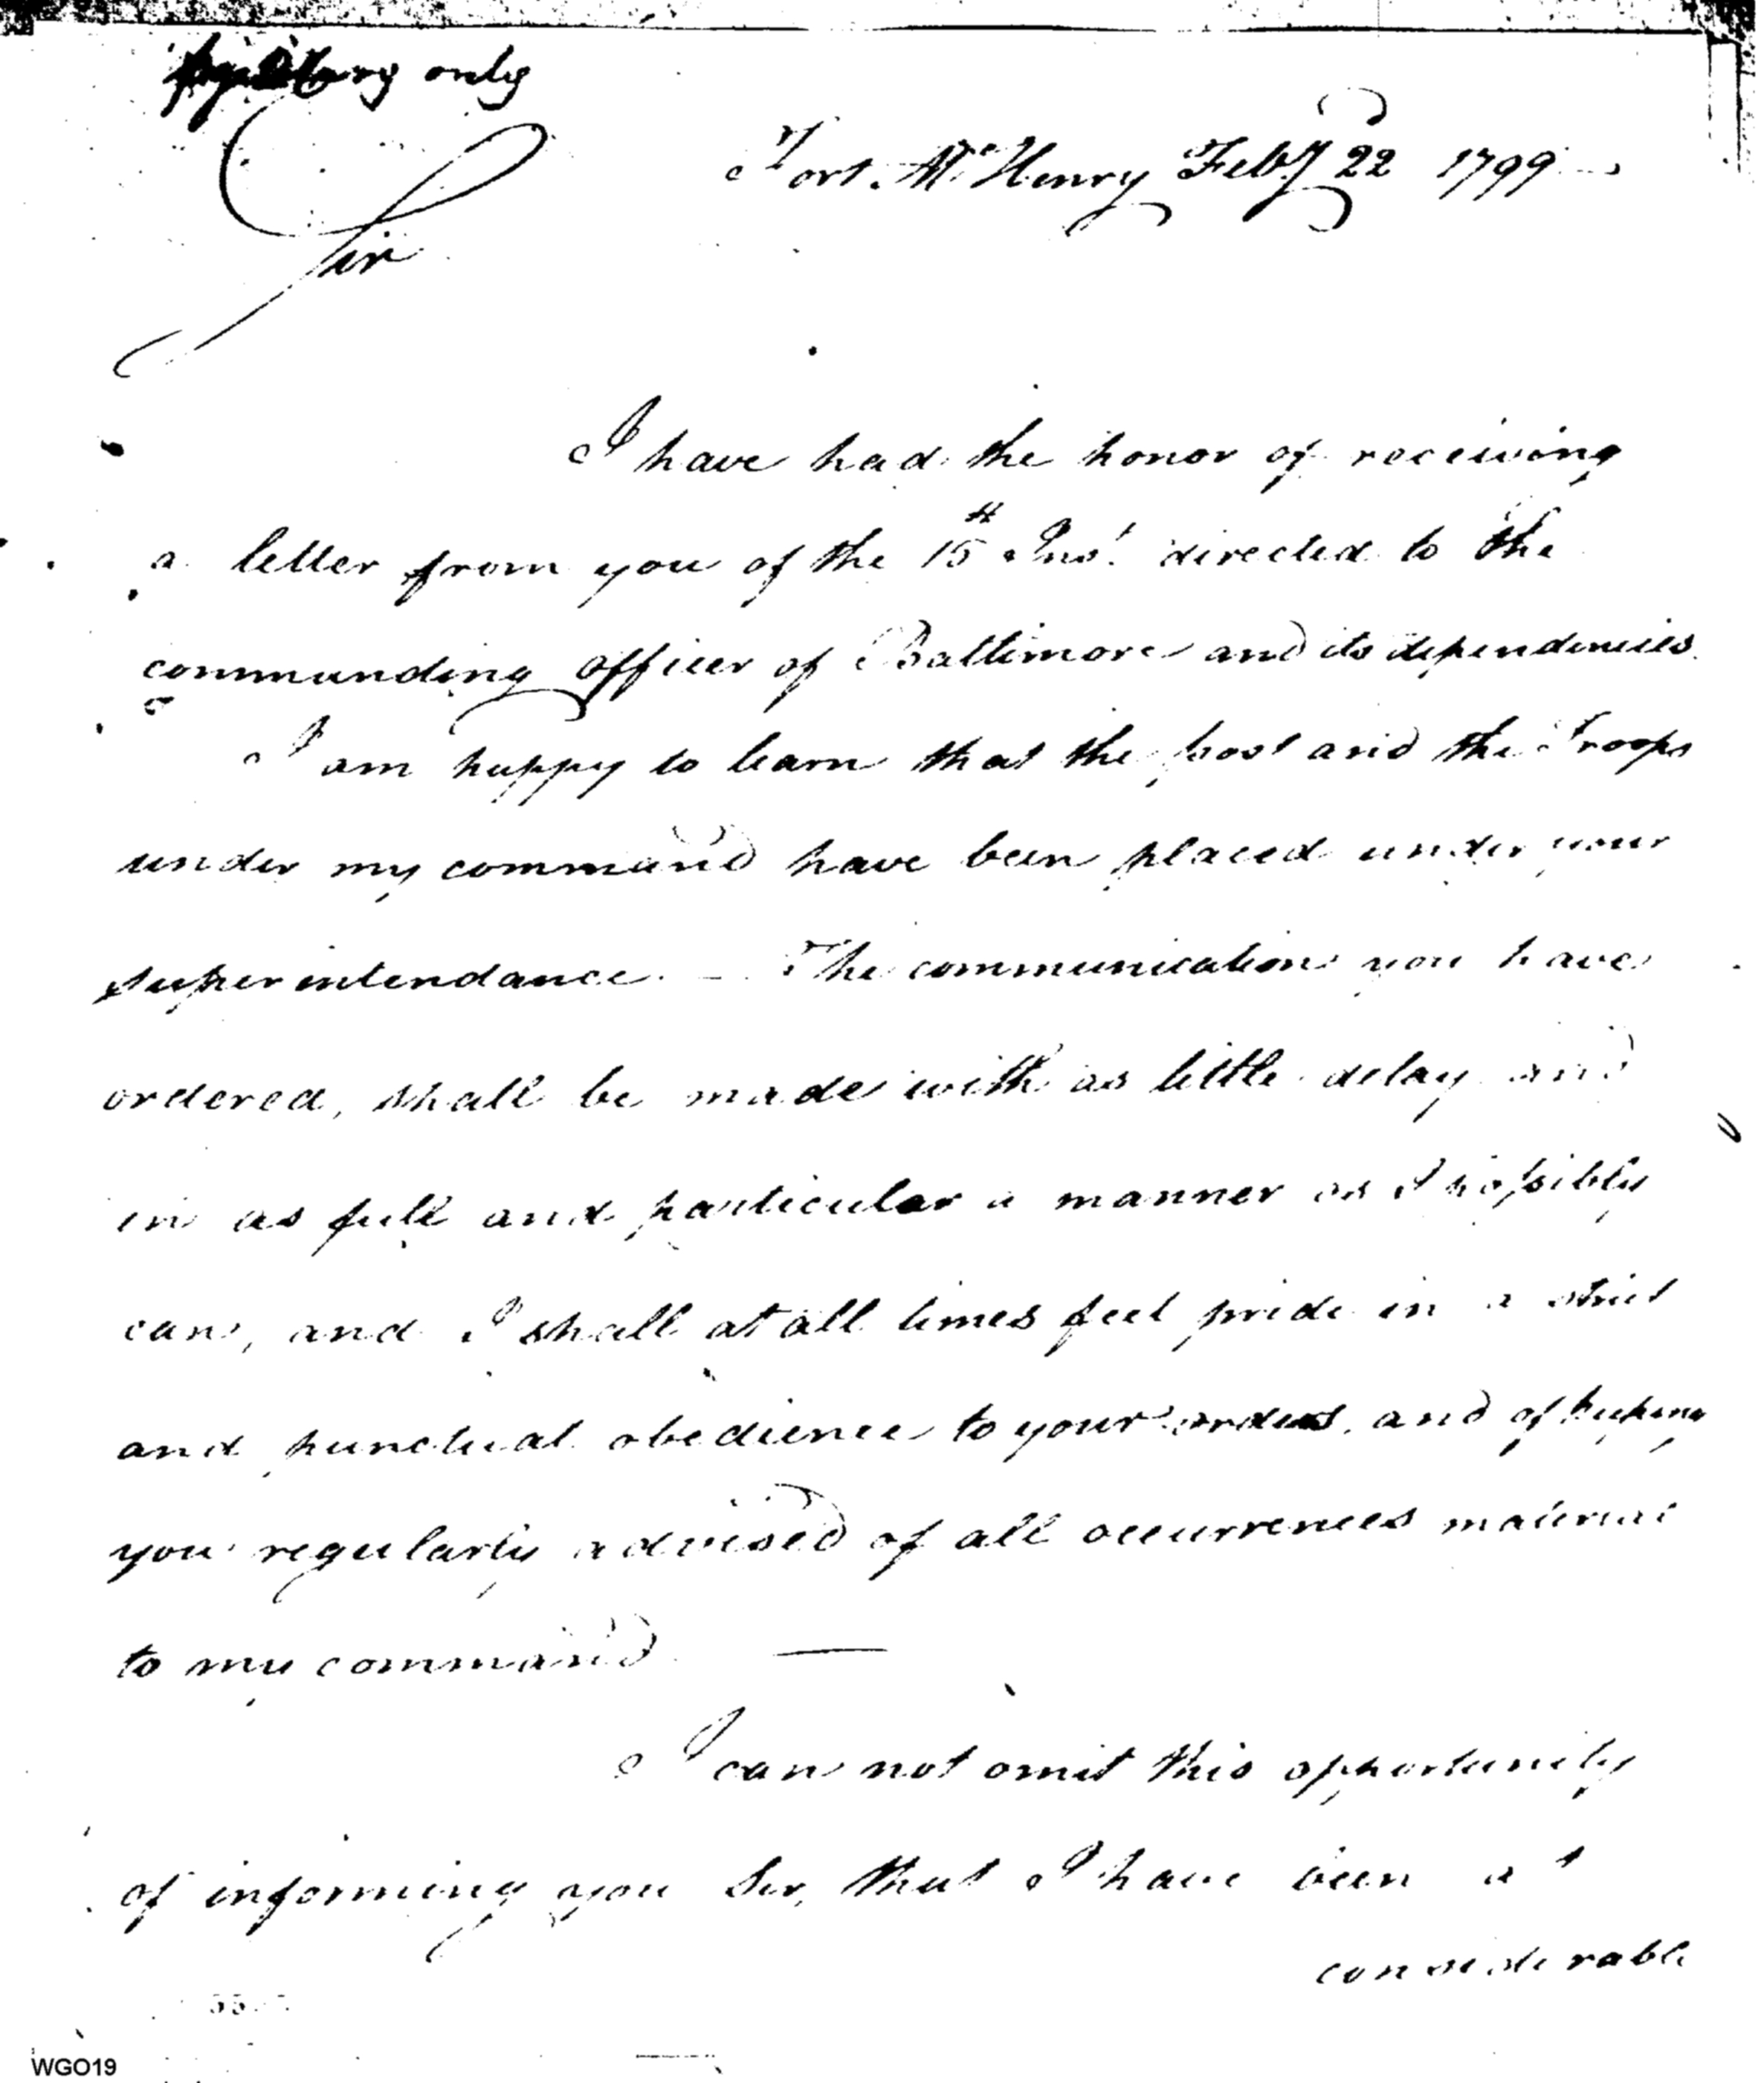 only
Fort McHenry Feby 22 1799
Sir
I have had the honor of receiving
a letter from you of the 15th Inst. directed to the
commanding officer of Baltimore and its dependencies.
I am happy to learn that the post and the Troops
under my command have been placed under your
superintendance. — The communication you have
ordered, shall be made with as little delay and
in as full and particular a manner as I possibly
can, and I shall at all times feel pride in a strict
and punctual obedience to your orders, and of keeping
you regularly advised of all occurrences material
to my command —
I can not omit this opportunity
of informing you Sir, that I have been at
considerable
WGO19